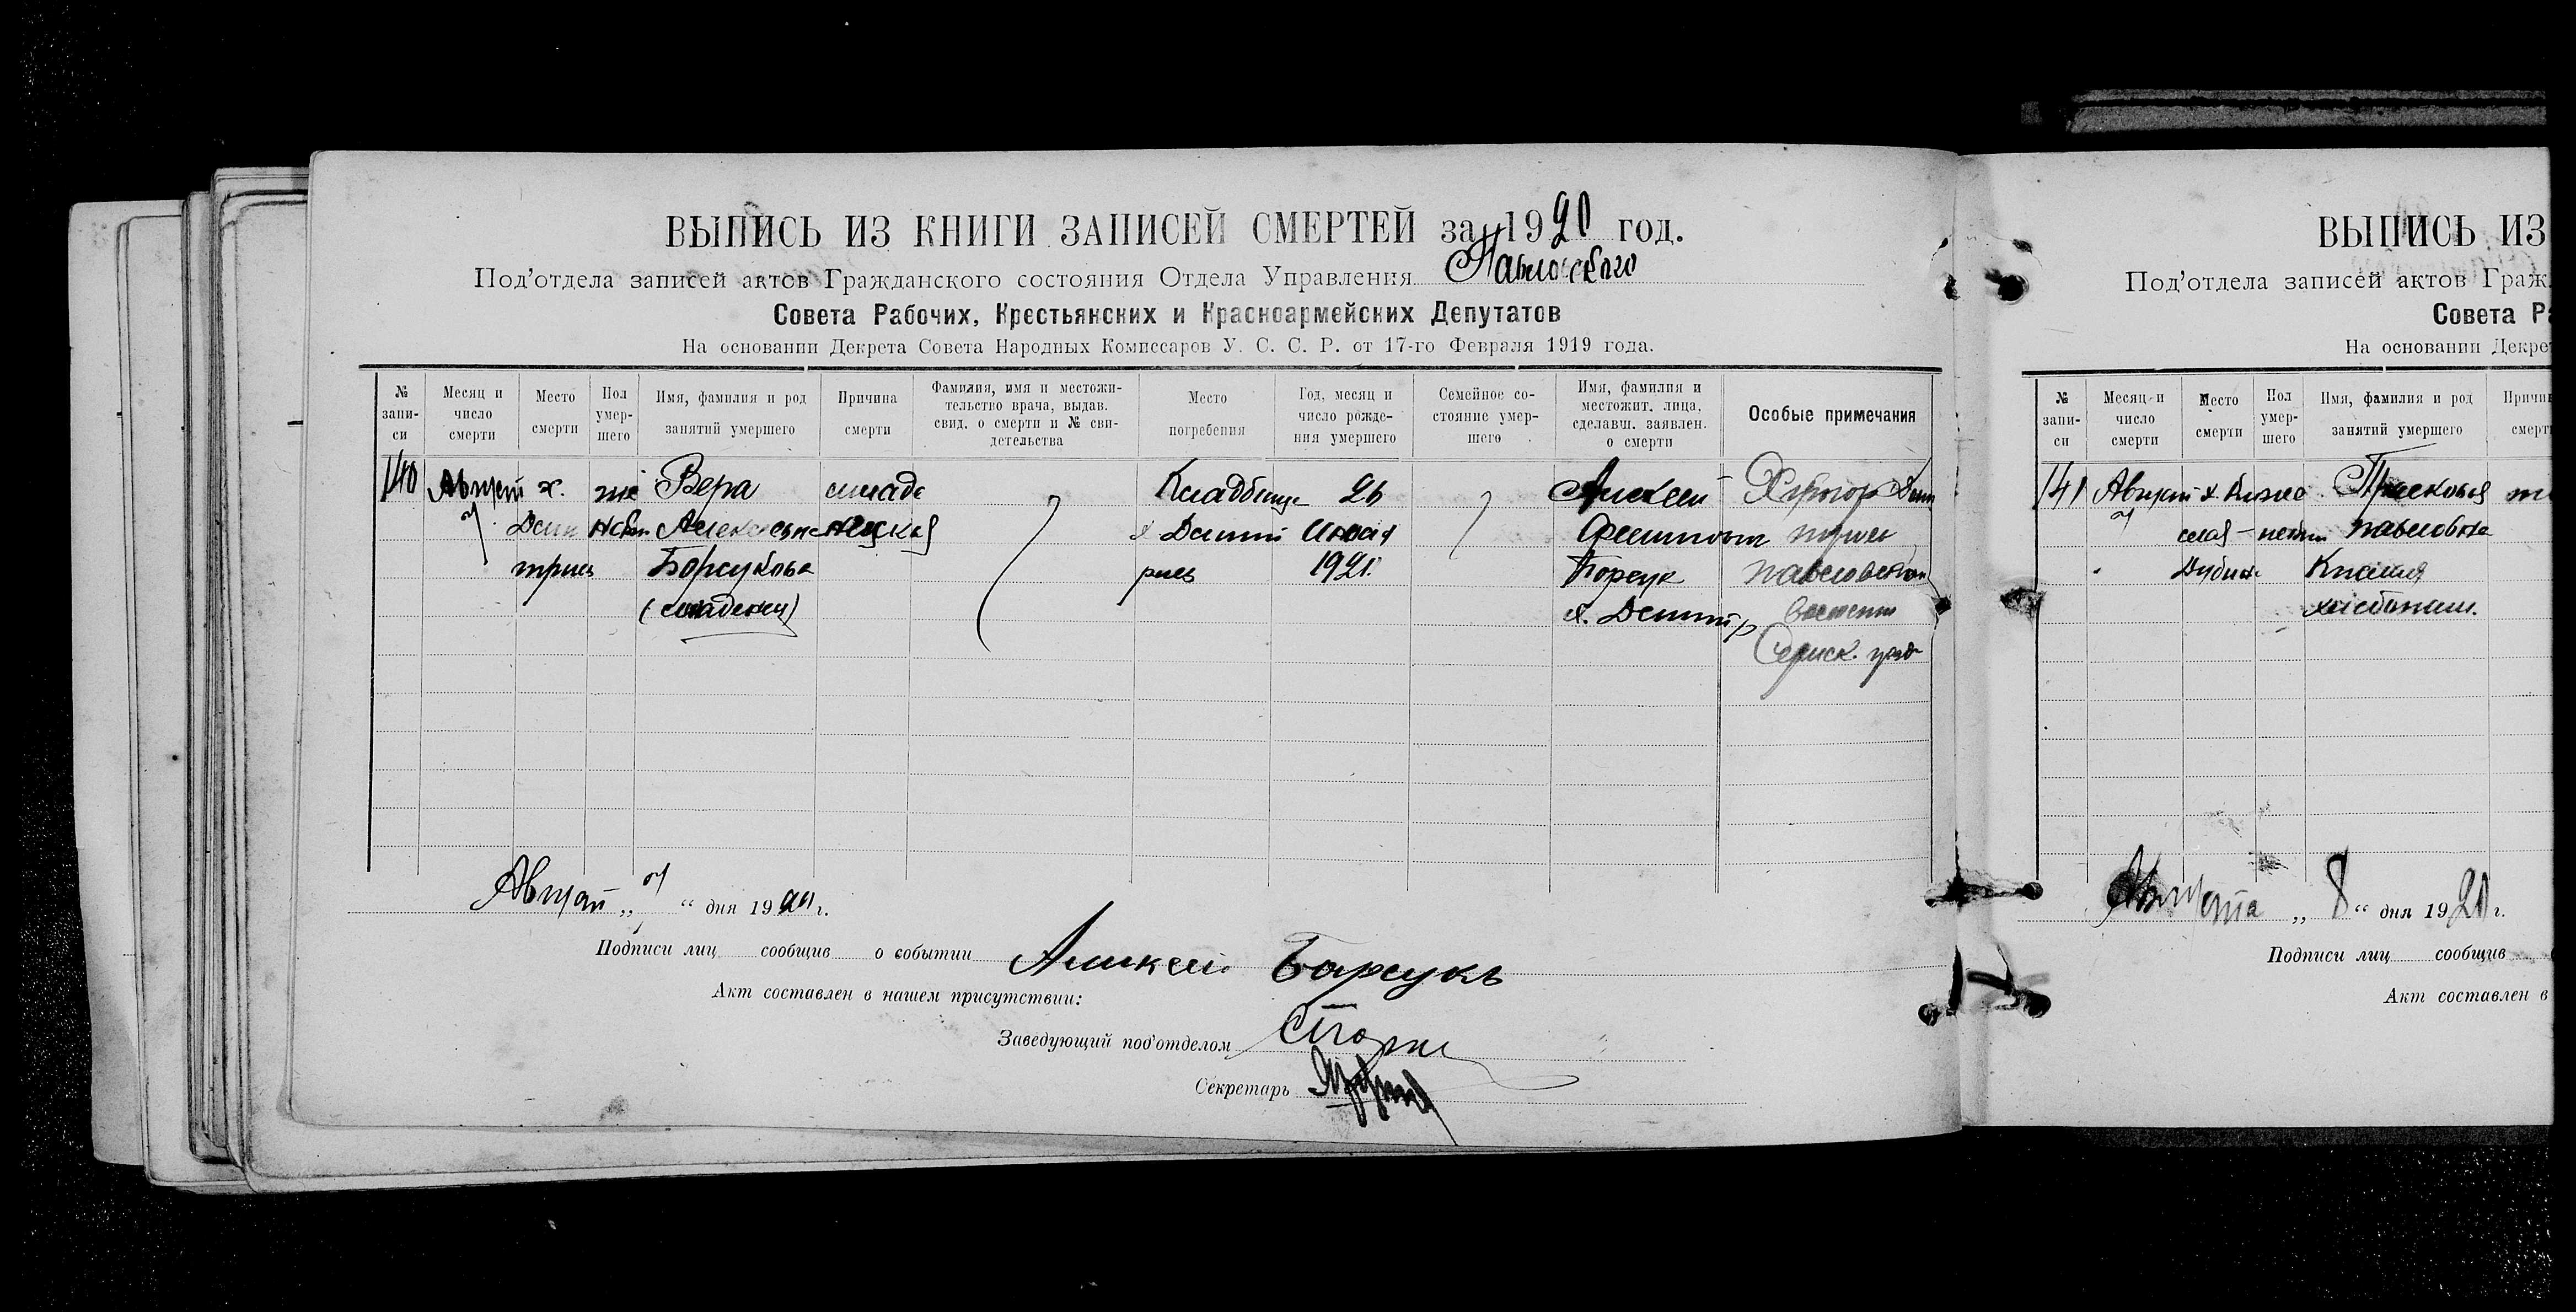 ВЫПИСЬ ИЗ КНИГИ ЗАПИСЕЙ СМЕРТЕЙ за 1920 год.
Под'отдела записей актов Гражданского состояния Отдела Управления Павловского
Совета Рабочих, Крестьянских и Красноармейских Депутатов
На основании Декрета Совета Народных Комиссаров У. С. С. Р. от 17-го Февраля 1919 года.
№ запи-
си
Месяц и
число
смерти
Место
смерти
Пол
умер-
шего
Имя, фамилия и род
занятий умершего
Причина
смерти
Фамилия, имя и местожи-
тельство врача, выдав.
свид. о смерти и № сви-
детельства
Место
погребения
Год, месяц и
число рожде-
ния умершего
Семейное со-
стояние умер-
шего
Имя, фамилия и
местожит. лица,
сделавш. заявлен.
о смерти
Особые примечания
140
Август
7
х.
Дми
триев
же
нский
Вера
Алексеевна
Борсукова
(младенец)
младе
нческая
Кладбище
х Дмит
риев
26
Июля
1920
Алексей
Борсук
х. Дмитр
Хутор Дми
Павловской
волости
Август „ 7 “ дня 1920 г.
Подписи лиц сообщив о событии Алексей Барсукъ
Акт составлен в нашем присутствии:
Заведующий под'отделом
Секретарь
ВЫПИСЬ ИЗ
Под'отдела записей актов Граж
Совета Ра
На основании Декре
№ запи-
си
Месяц и
число
смерти
Место
смерти
Пол
умер-
шего
Имя, фамилия и род
занятий умершего
Причин
смерт
141
Август
7
Павловна
Августа „ 8 “ дня 1920 г.
Подписи лиц сообщив
Акт составлен в